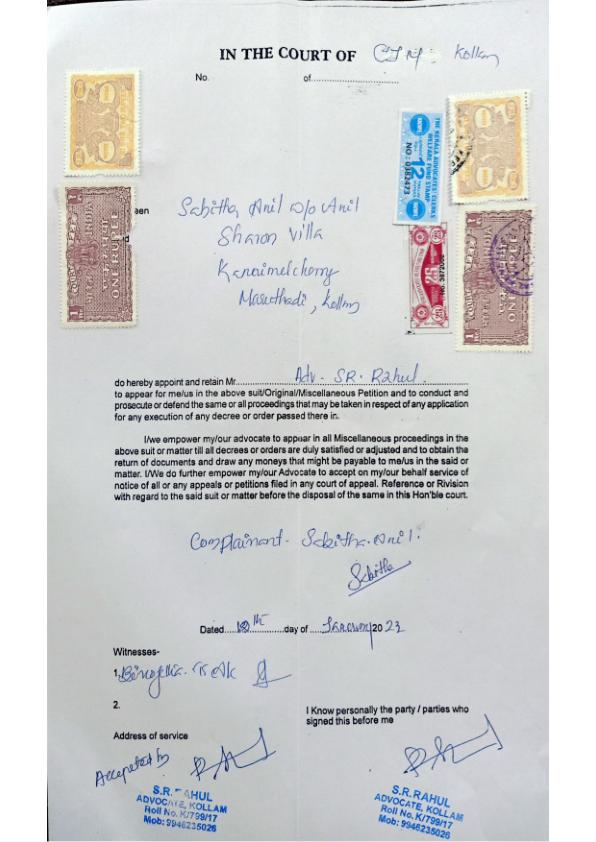 IN THE COURT OF Kollam
No. of
12
NO: 0382473
25
ONE RUPEE
INDIA
ONE RUPEE
een
Sabitha Anil w/o Anil
Sharon Villa
Kannimelcherry
Maruthadi, Kollam
do hereby appoint and retain Mr. Adv. SR. Rahul.
to appear for me/us in the above suit/Original/Miscellaneous Petition and to conduct and
prosecute or defend the same or all proceedings that may be taken in respect of any application
for any execution of any decree or order passed there in.
I/we empower my/our advocate to appear in all Miscellaneous proceedings in the
above suit or matter till all decrees or orders are duly satisfied or adjusted and to obtain the
return of documents and draw any moneys that might be payable to me/us in the said or
matter. I/We do further empower my/our Advocate to accept on my/our behalf service of
notice of all or any appeals or petitions filed in any court of appeal. Reference or Rivision
with regard to the said suit or matter before the disposal of the same in this Hon'ble court.
Complainant - Sabitha Anil.
Sabitha
Dated day of January 2023
Witnesses-
1.
2.
I Know personally the party / parties who
signed this before me
Address of service
Accepted by
S.R. RAHUL
ADVOCATE, KOLLAM
Roll No. K/799/17
Mob: 9946235026
S.R. RAHUL
ADVOCATE, KOLLAM
Roll No. K/799/17
Mob: 9946235026